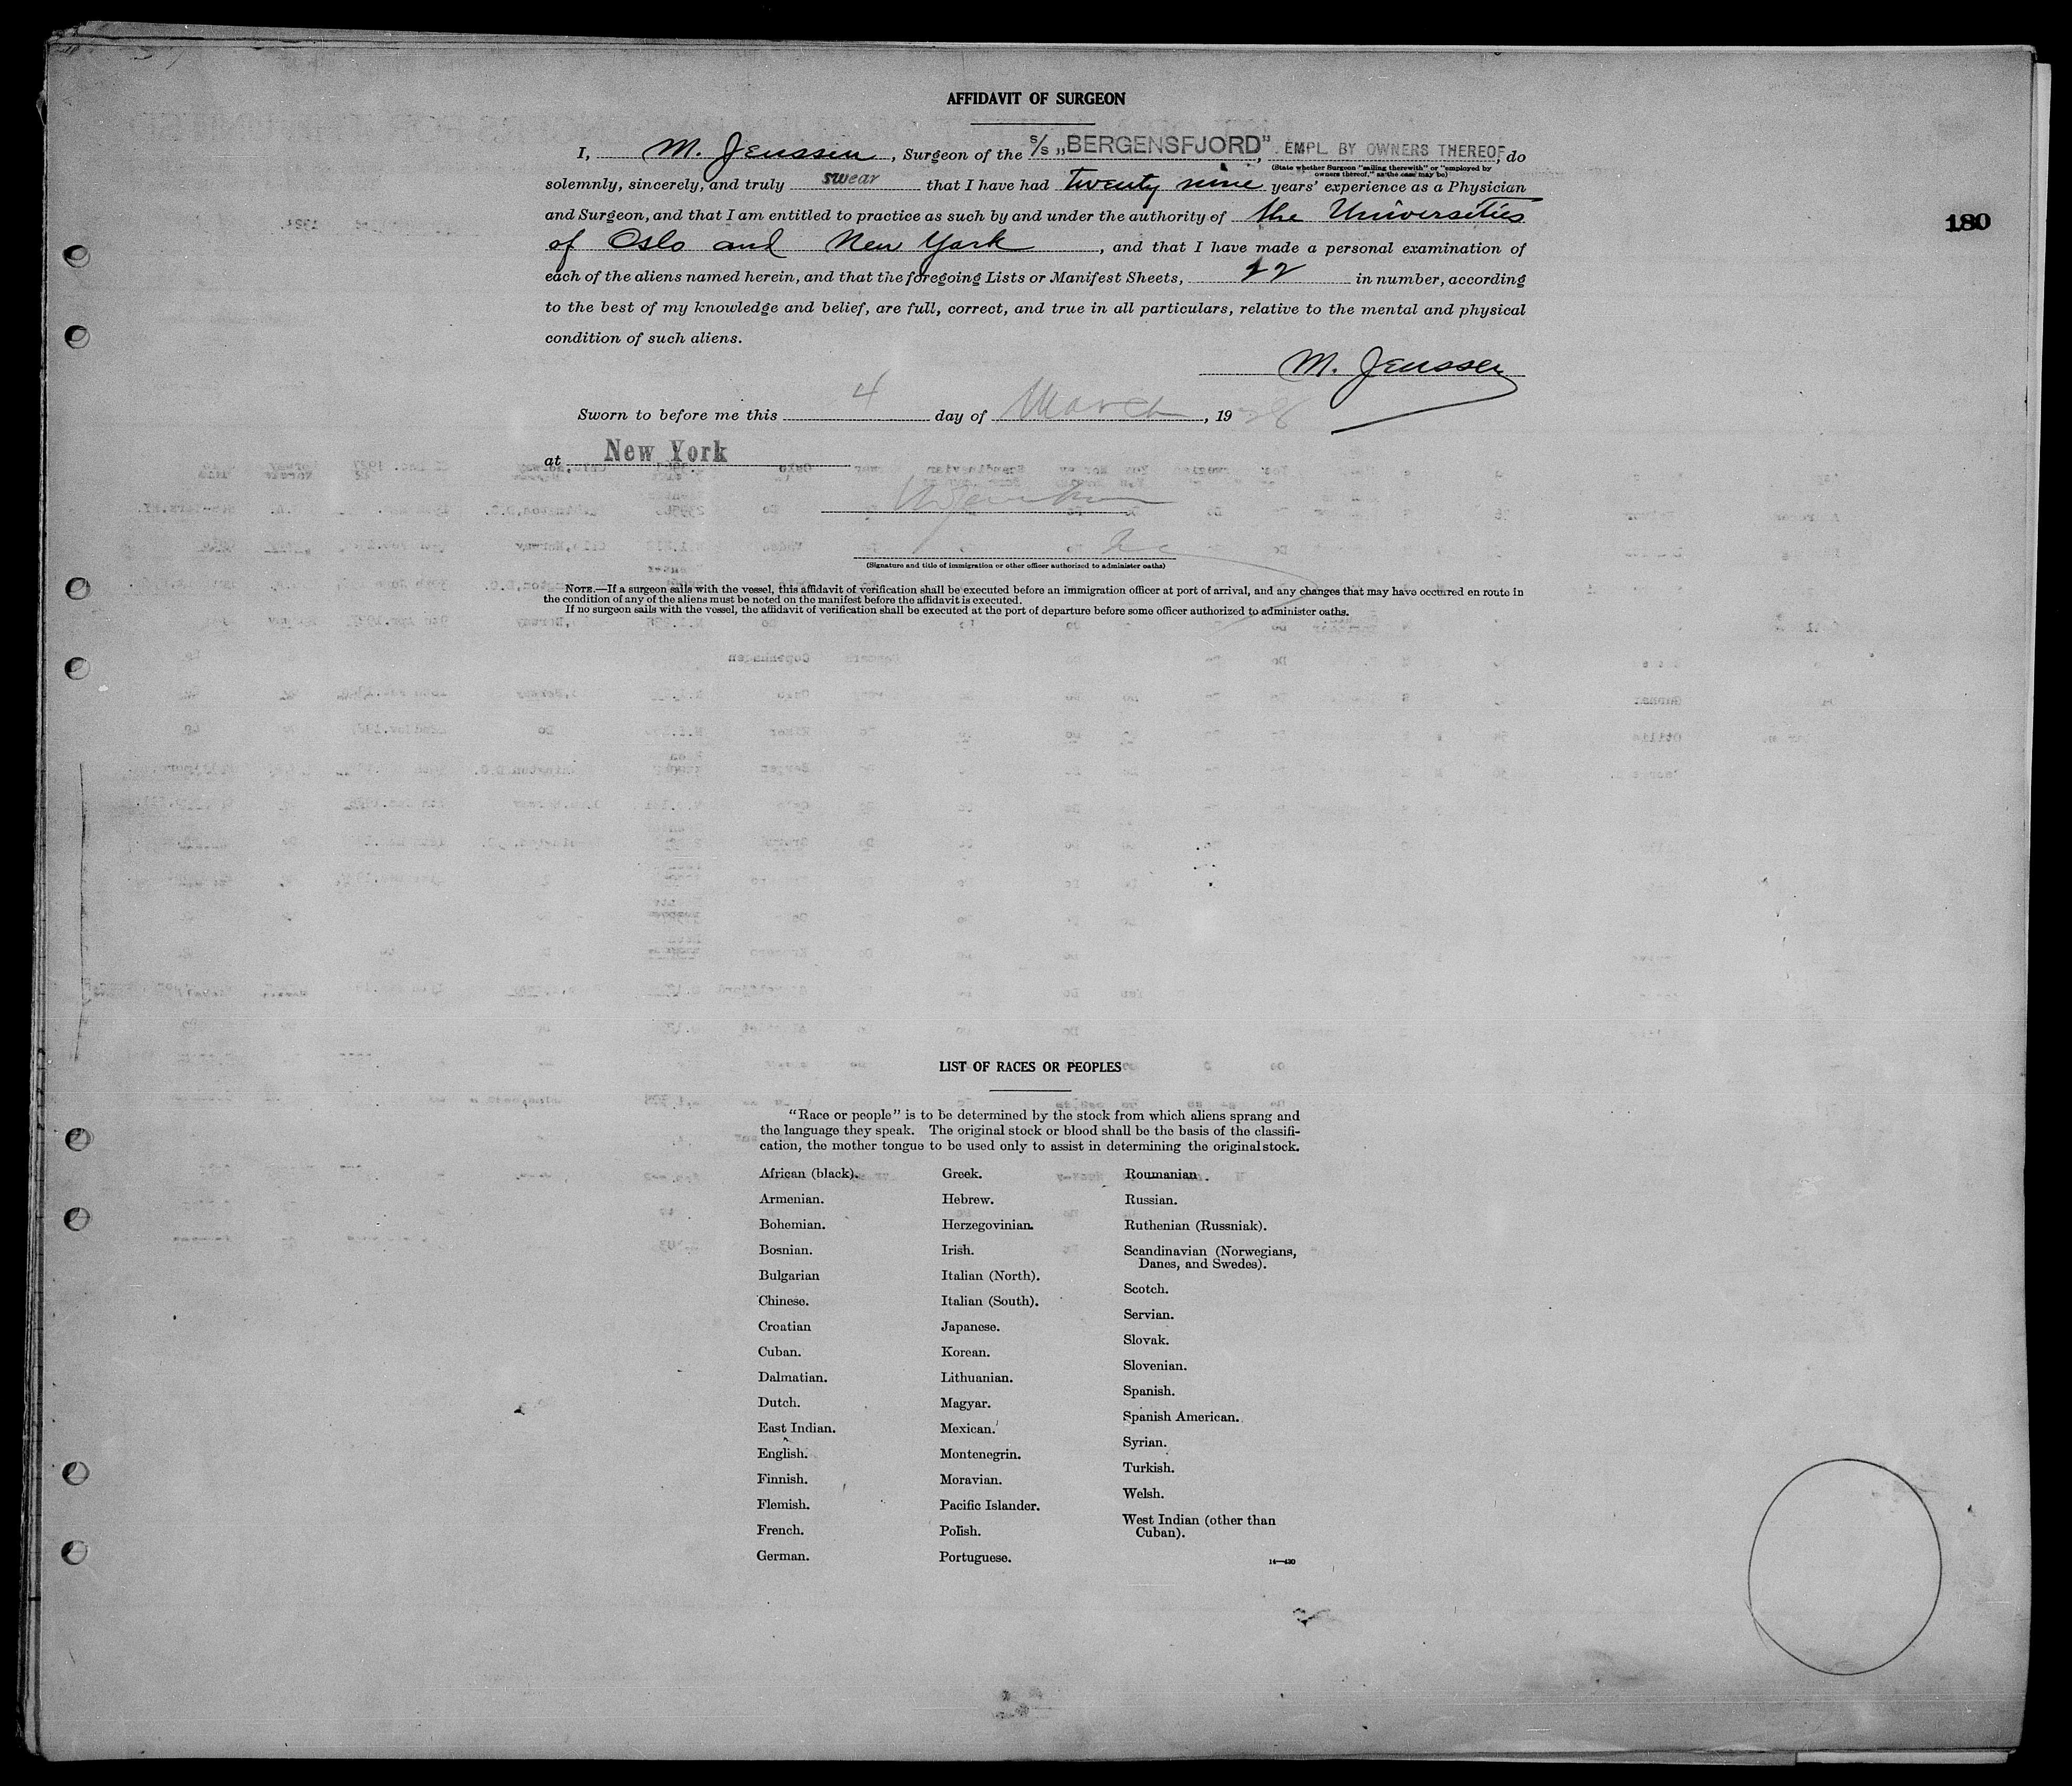 AFFIDAVIT OF SURGEON
I, M. Jenssen, Surgeon of the S/S „BERGENSFJORD", EMPL BY OWNERS THEREOF, do
(State whether Surgeon "sailing therewith" or "employed by
owners thereof," as the case may be)
solemnly, sincerely, and truly swear that I have had twenty nine years' experience as a Physician
and Surgeon, and that I am entitled to practice as such by and under the authority of the Universities
180
of Oslo and New York, and that I have made a personal examination of
each of the aliens named herein, and that the foregoing Lists or Manifest Sheets, 22 in number, according
to the best of my knowledge and belief, are full, correct, and true in all particulars, relative to the mental and physical
condition of such aliens.
M. Jenssen
Sworn to before me this 4 day of March, 1928
at New York
(Signature and title of immigration or other officer authorized to administer oaths)
NOTE.—If a surgeon sails with the vessel, this affidavit of verification shall be executed before an immigration officer at port of arrival, and any changes that may have occurred en route in
the condition of any of the aliens must be noted on the manifest before the affidavit is executed.
If no surgeon sails with the vessel, the affidavit of verification shall be executed at the port of departure before some officer authorized to administer oaths.
LIST OF RACES OR PEOPLES
"Race or people" is to be determined by the stock from which aliens sprang and
the language they speak. The original stock or blood shall be the basis of the classifi-
cation, the mother tongue to be used only to assist in determining the original stock.
African (black).
Armenian.
Bohemian.
Bosnian.
Bulgarian
Chinese.
Croatian
Cuban.
Dalmatian.
Dutch.
East Indian.
English.
Finnish.
Flemish.
French.
German.
Greek.
Hebrew.
Herzegovinian.
Irish.
Italian (North).
Italian (South).
Japanese.
Korean.
Lithuanian.
Magyar.
Mexican.
Montenegrin.
Moravian.
Pacific Islander.
Polish.
Portuguese.
Roumanian.
Russian.
Ruthenian (Russniak).
Scandinavian (Norwegians,
Danes, and Swedes).
Scotch.
Servian.
Slovak.
Slovenian.
Spanish.
Spanish American.
Syrian.
Turkish.
Welsh.
West Indian (other than
Cuban).
14—430